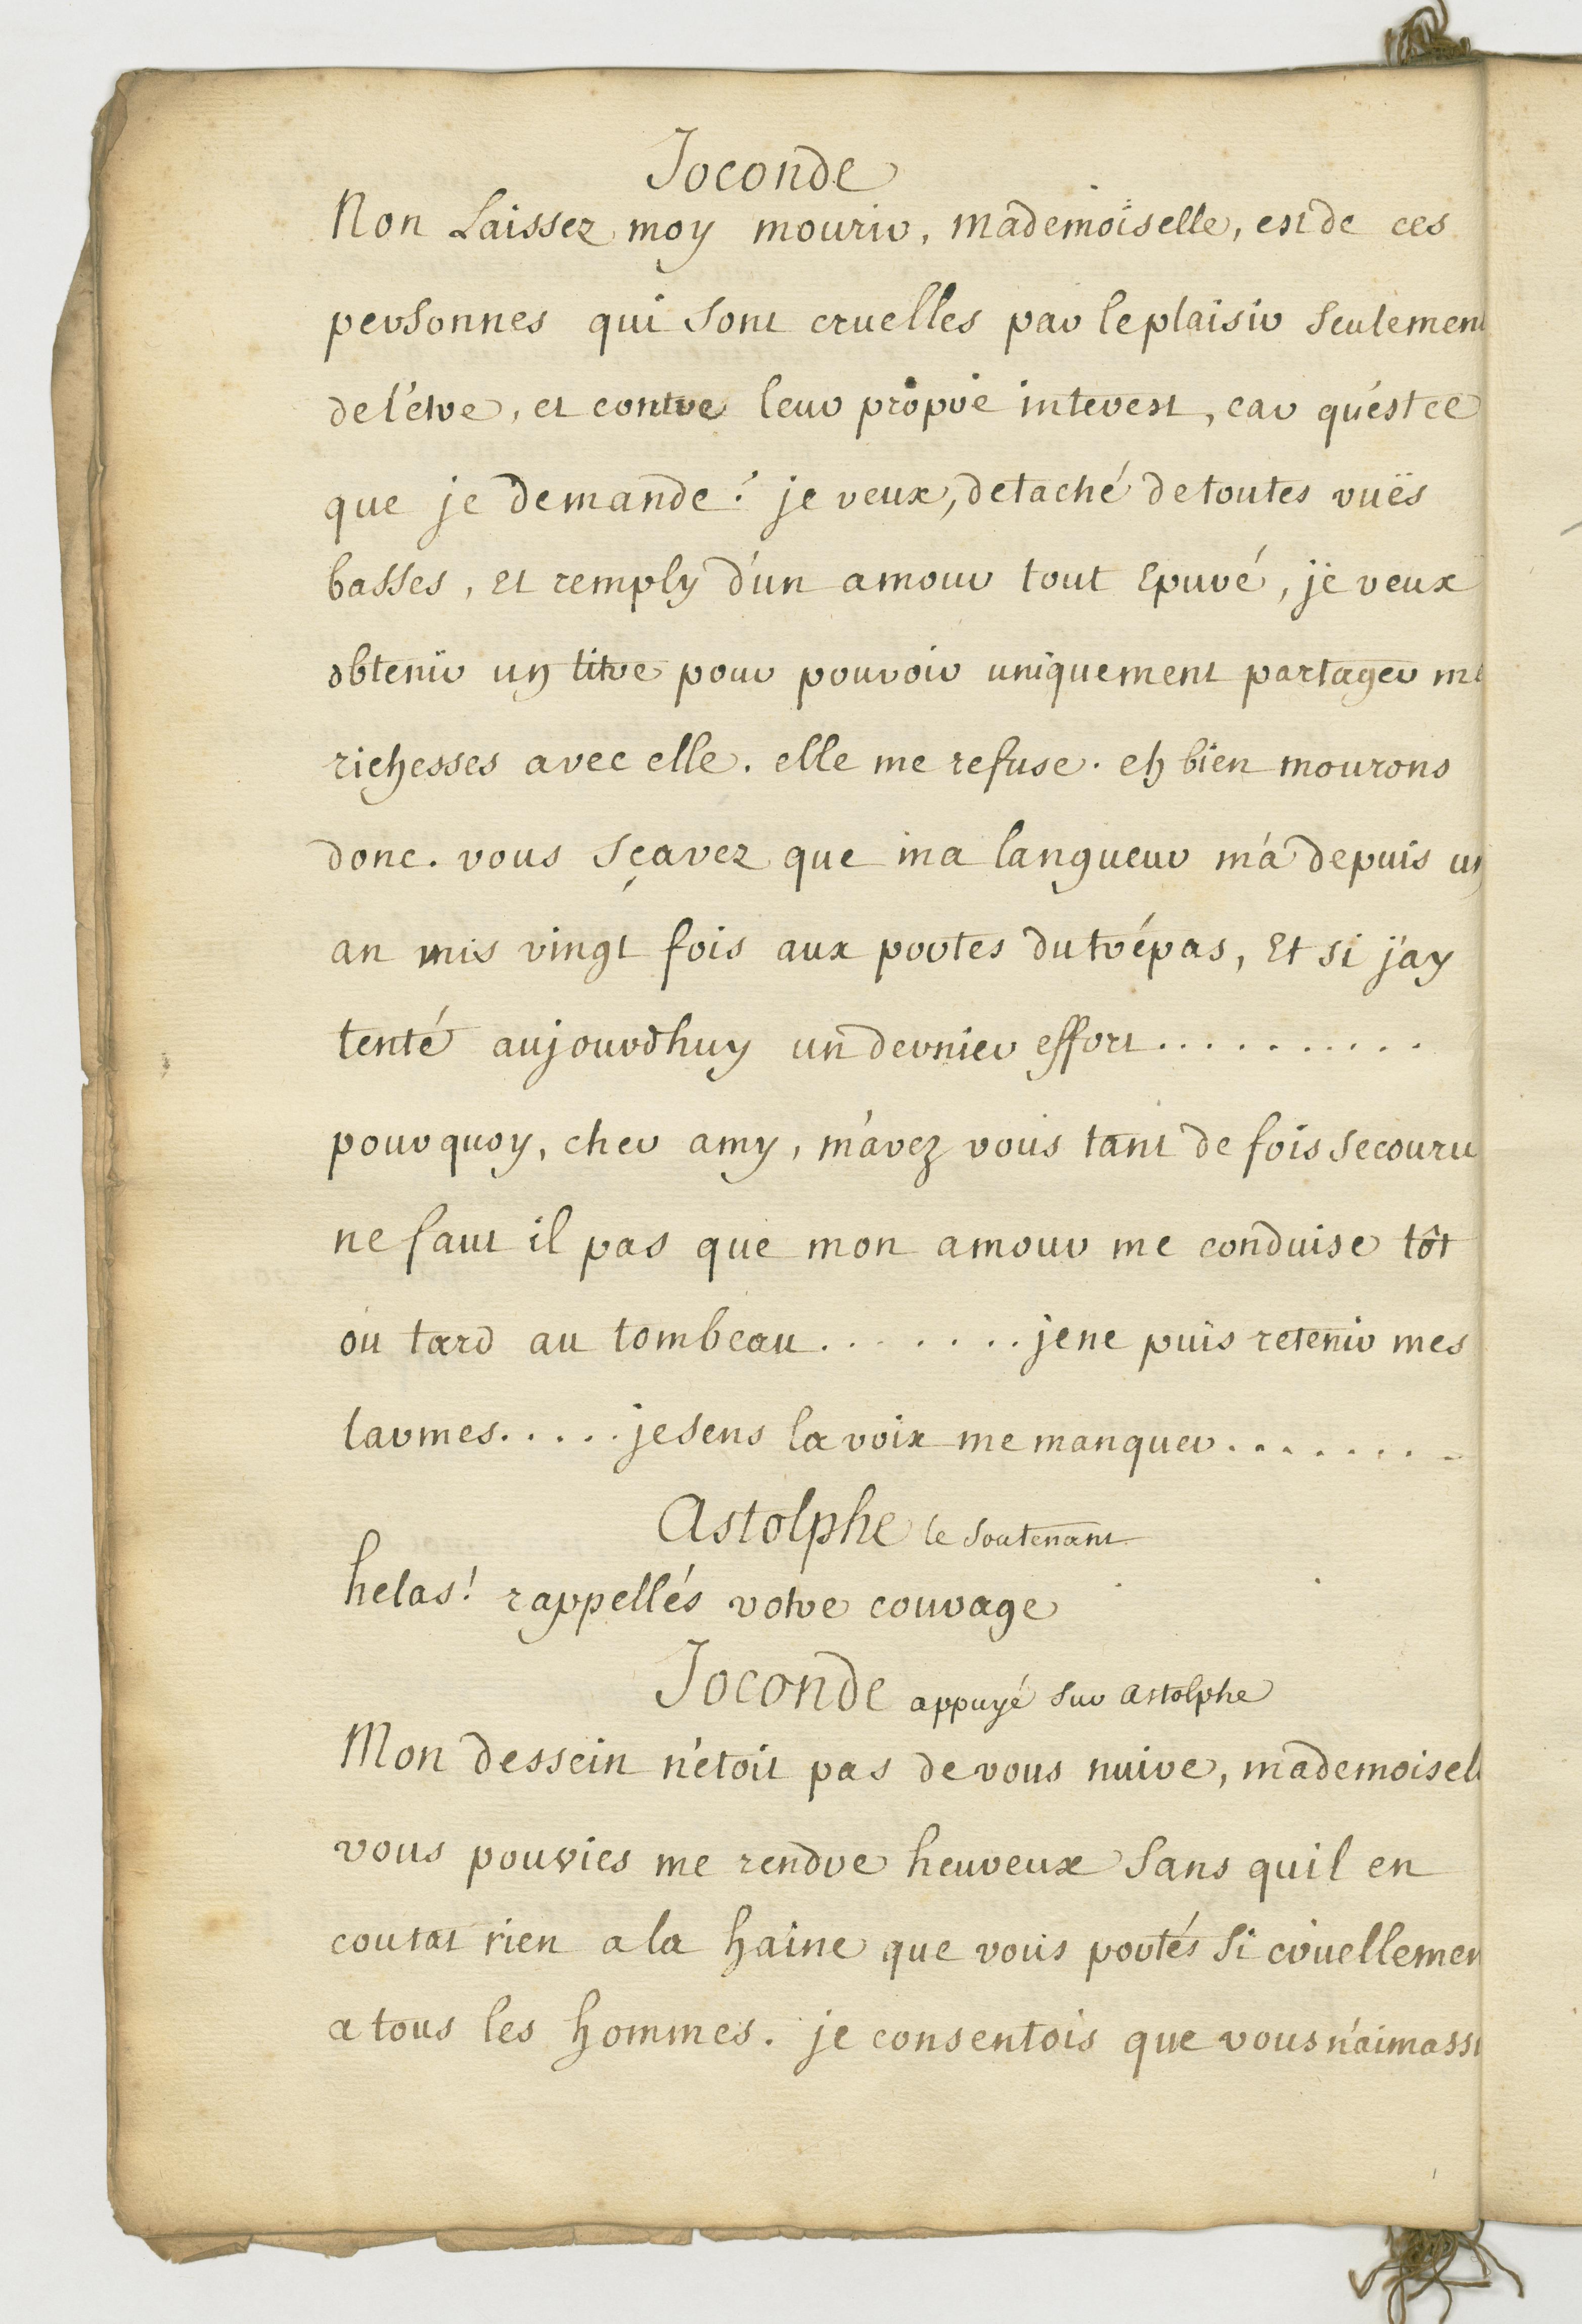 Joconde
Non Laissez moy mourir, mademoiselle, est de ces
personnes qui sont cruelles par le plaisir seulement
de l'étre, et contre leur propre interest, car qu'est ce
que je demande? je veux, detaché de toutes vuës
basses, et remply d'un amour tout epuré, je veux
obtenir un titre pour pouvoir uniquement partager
richesses avec elle. elle me refuse. eh bien mourons
donc. vous sçavez que ma langueur m'a depuis un
an mis vingt fois aux portes du trépas, et si j'ay
tenté aujourdhuy un dernier effort..........
pourquoy, cher amy, m'avez vous tant de fois secouru
ne faut il pas que mon amour me conduise tôt
ou tard au tombeau....... je ne puis retenir mes
larmes..... je sens la voix me manquer........
Astolphe le soutenant
helas! rappellés votre courage
Joconde appuyé sur astolphe
Mon dessein n'etoit pas de vous nuire, mademoisel
vous pouvies me rendre heureux sans quil en
coutat rien a la haine que vous portés si cruellemen
a tous les hommes. je consentois que vous n'aimass